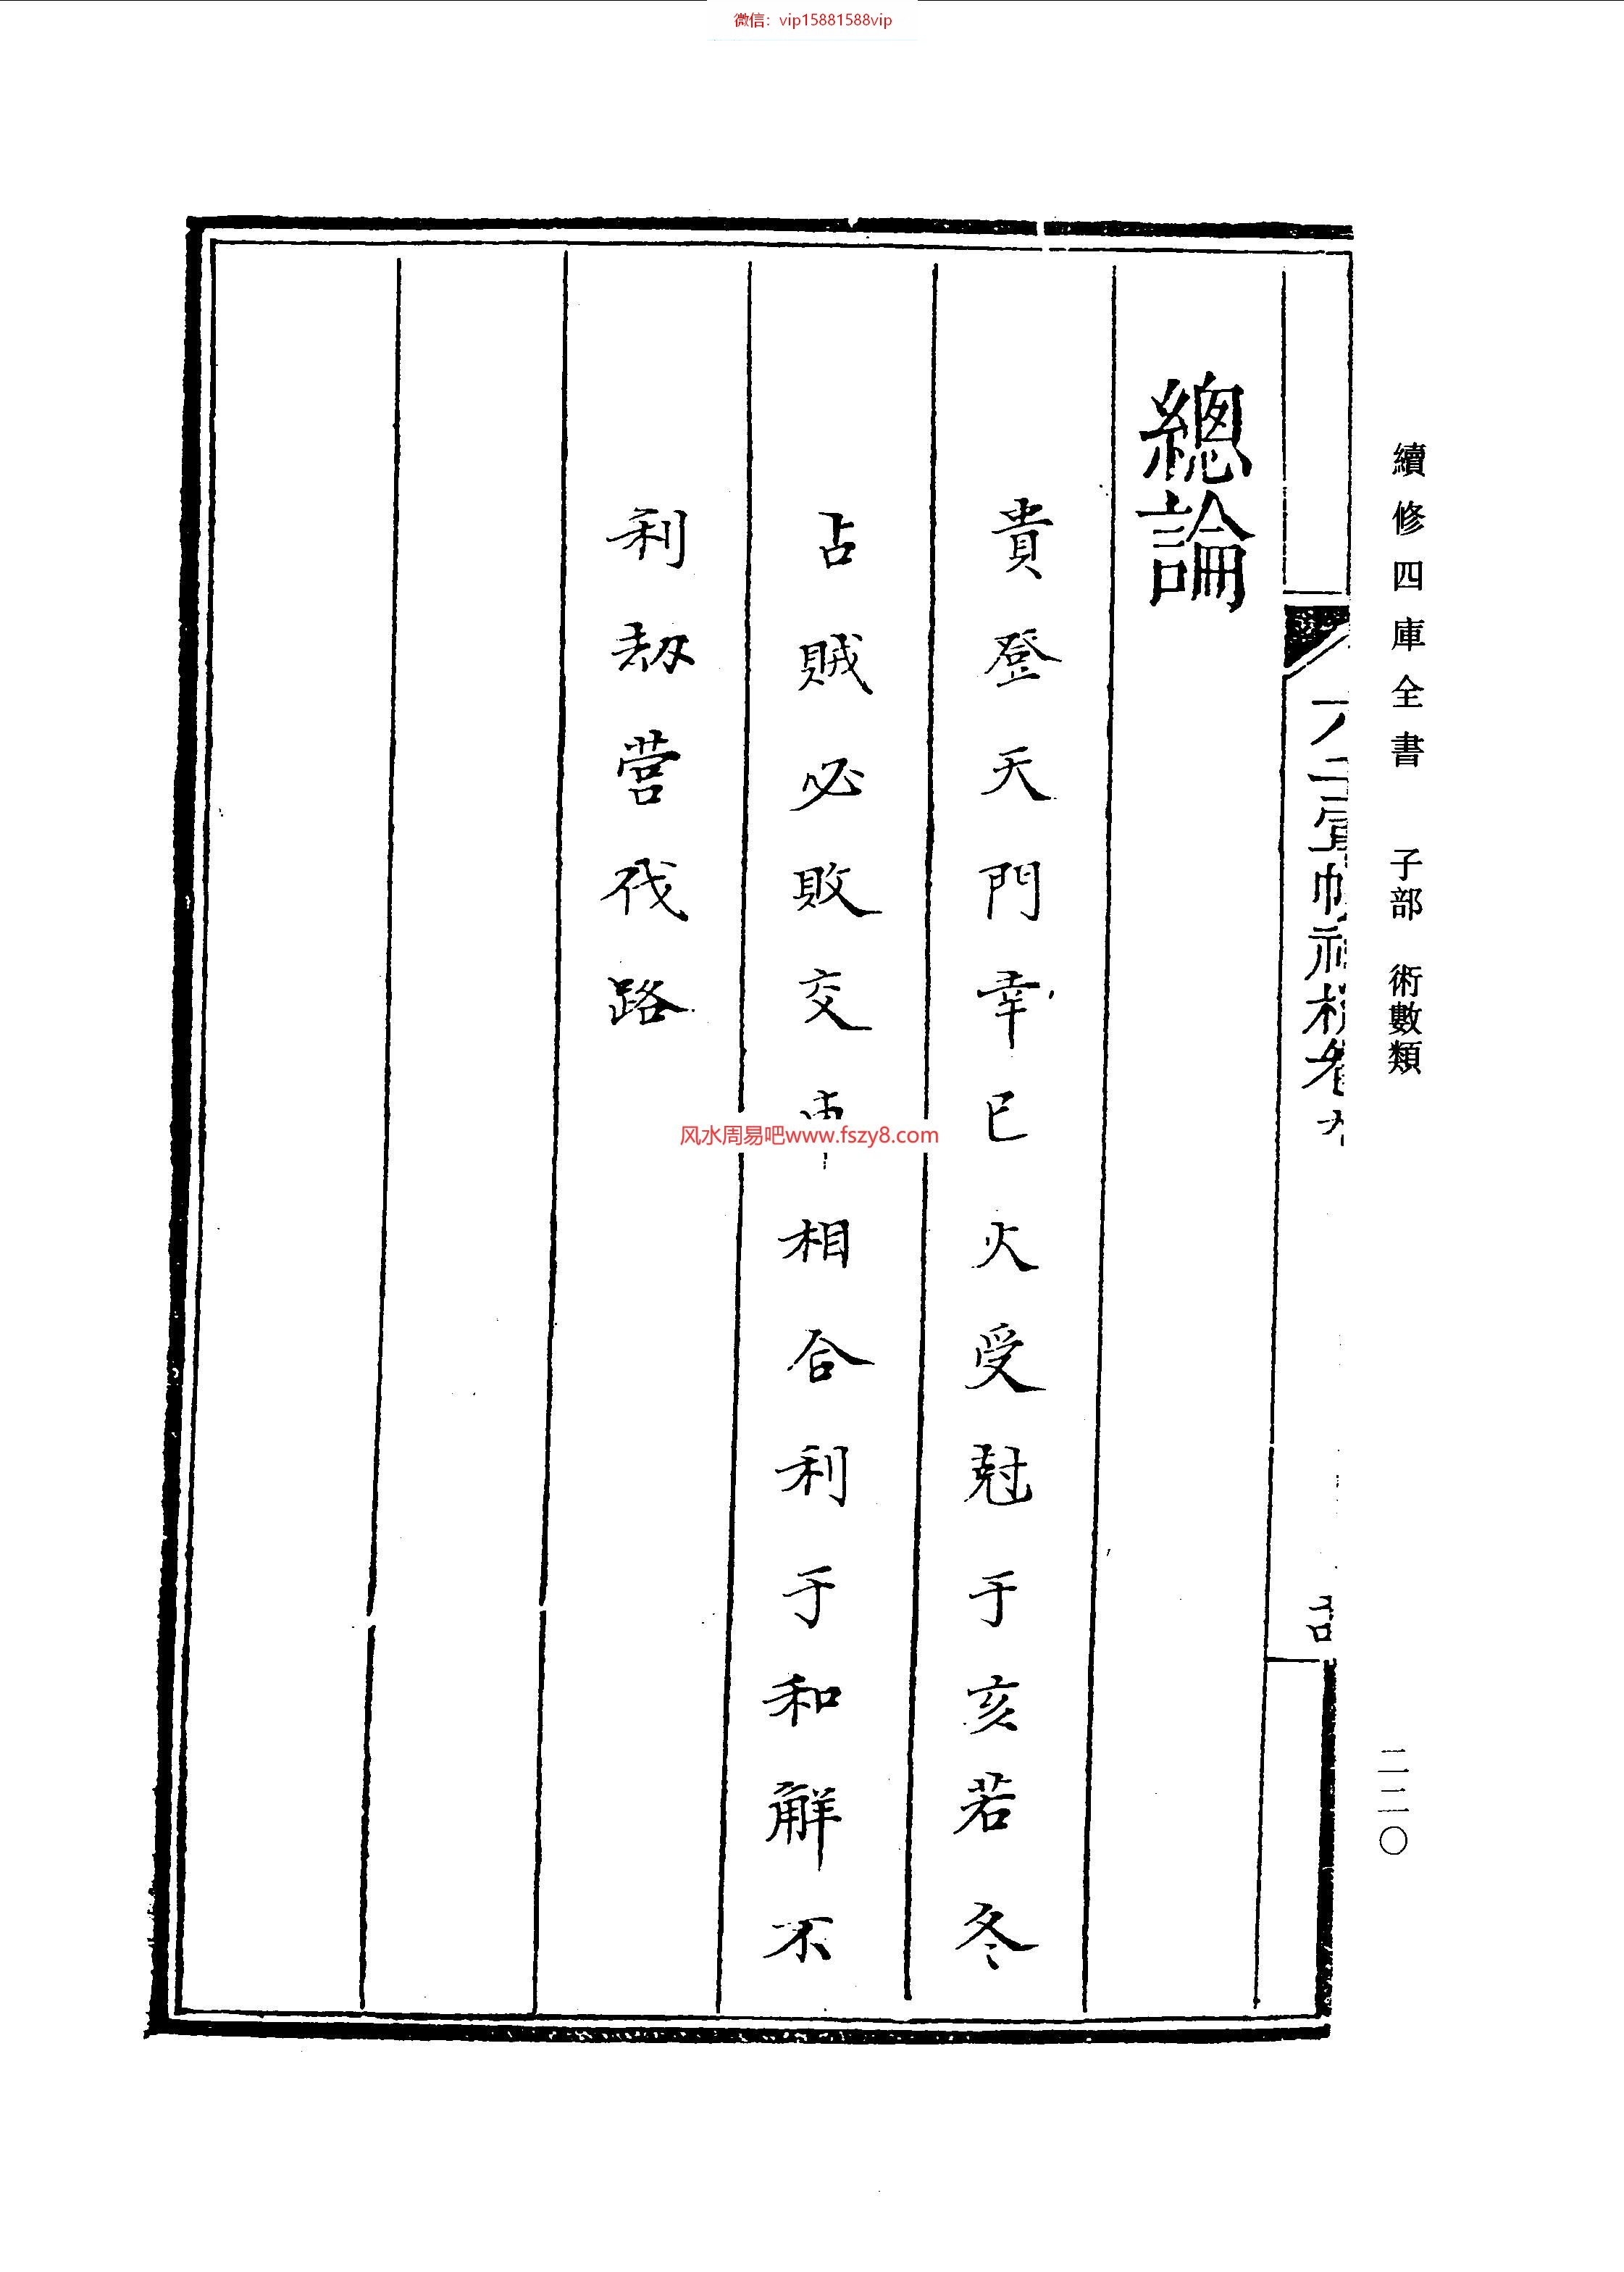 微信：vip15881588vip
續修四庫全書 子部 術數類
二二〇
總論
貴登天門幸巳火受尅于亥若冬
占賊必敗交車相合利于和解不
利刼营伐路
风水周易吧www.fszy8.com